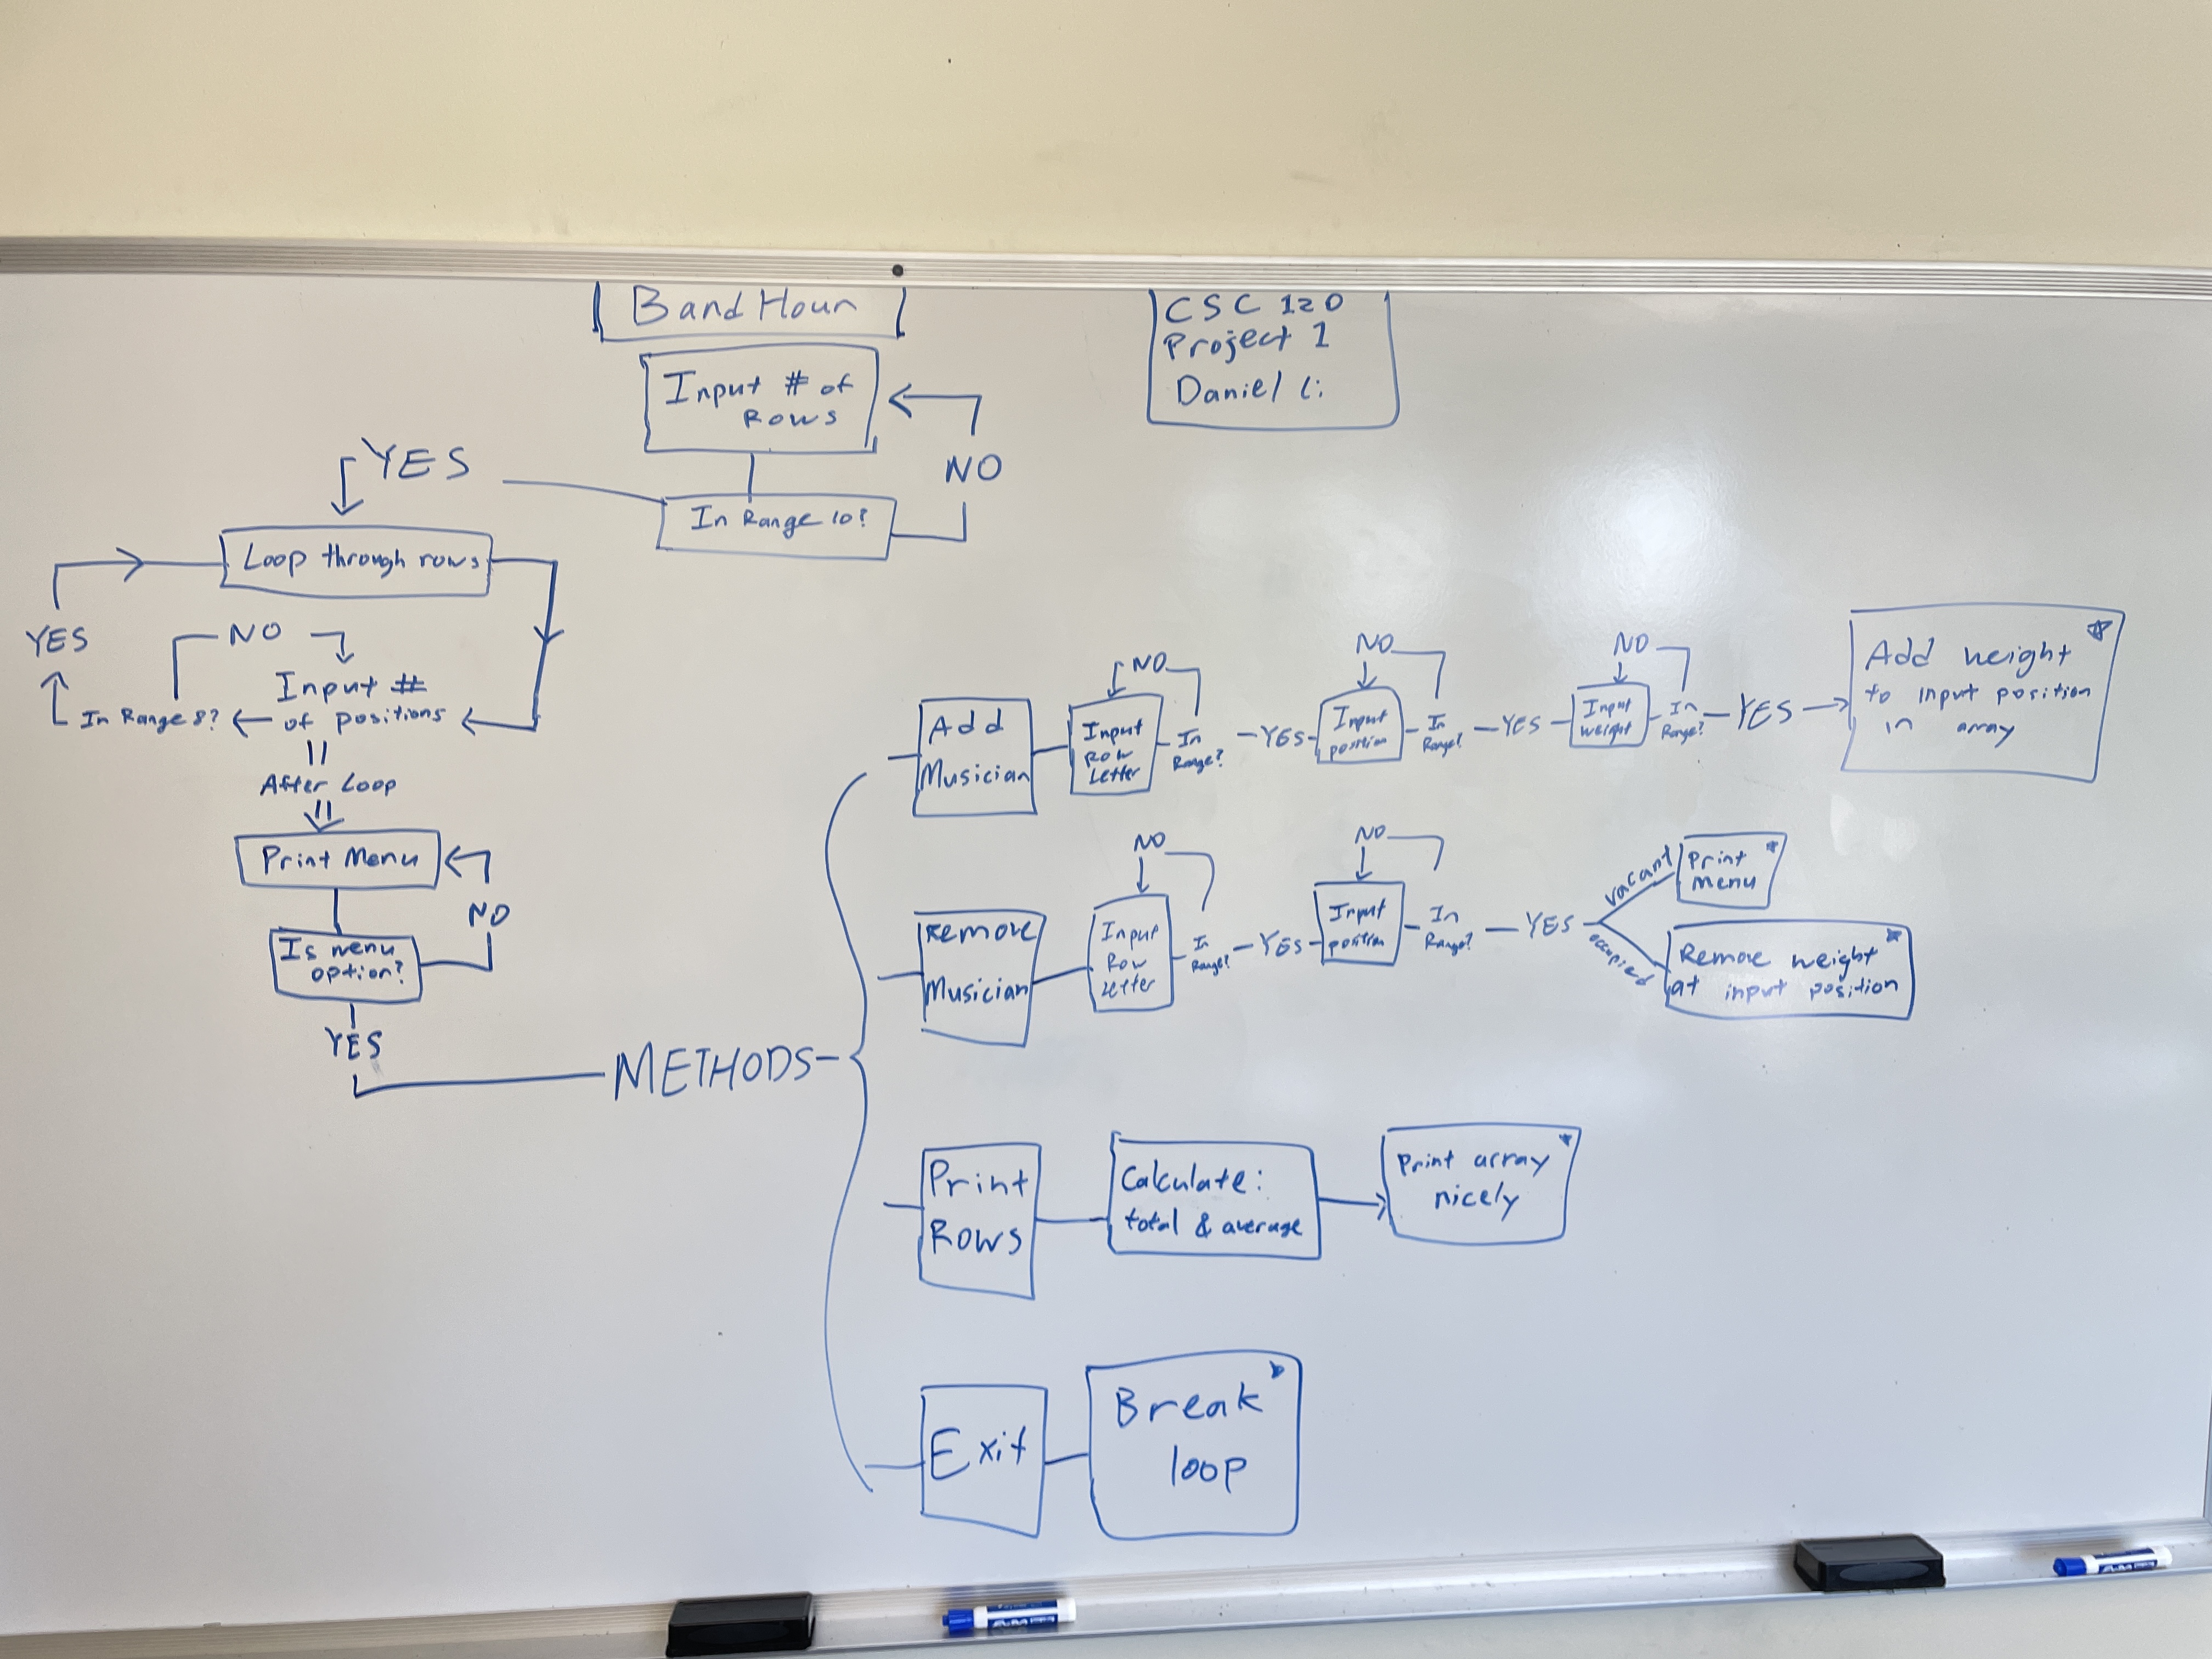 Band Hour
CSC 120
Project 1
Daniel Li
Input # of
Rows
NO
YES
In Range 10?
Loop through rows
YES
NO
Input #
of positions
In Range 8?
After Loop
Print Menu
NO
Is menu
option?
YES
METHODS
Add
Musician
NO
Input
Row
Letter
In
Range?
YES
NO
Input
position
In
Range?
YES
NO
Input
weight
In
Range?
YES
Add weight
to input position
in array
Remove
Musician
NO
Input
Row
Letter
In
Range?
YES
NO
Input
position
In
Range?
YES
vacant
Print
menu
occupied
Remove weight
at input position
Print
Rows
Calculate:
total & average
Print array
nicely
Exit
Break
loop